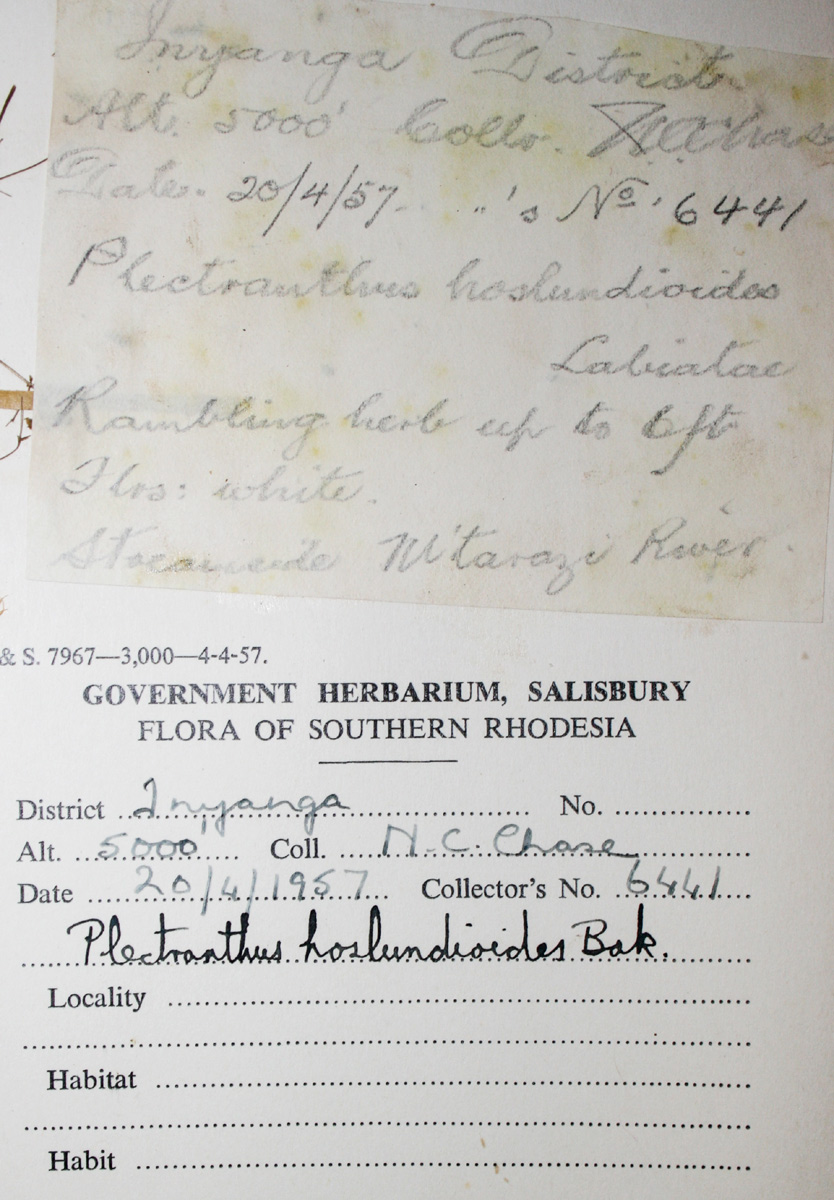 Inyanga District
Alt. 5000' Collr. N.C. Chase
Date. 20/4/57. "'s No. 6441
Plectranthus hoslundioides
Labiatae
Rambling herb up to 6ft
Flrs: white.
Streamside M'tarazi River.
& S. 7967—3,000—4-4-57.
GOVERNMENT HERBARIUM, SALISBURY
FLORA OF SOUTHERN RHODESIA
District Inyanga No.
Alt. 5000' Coll. N.C. Chase
Date 20/4/1957 Collector's No. 6441
Plectranthus hoslundioides Bak.
Locality
Habitat
Habit